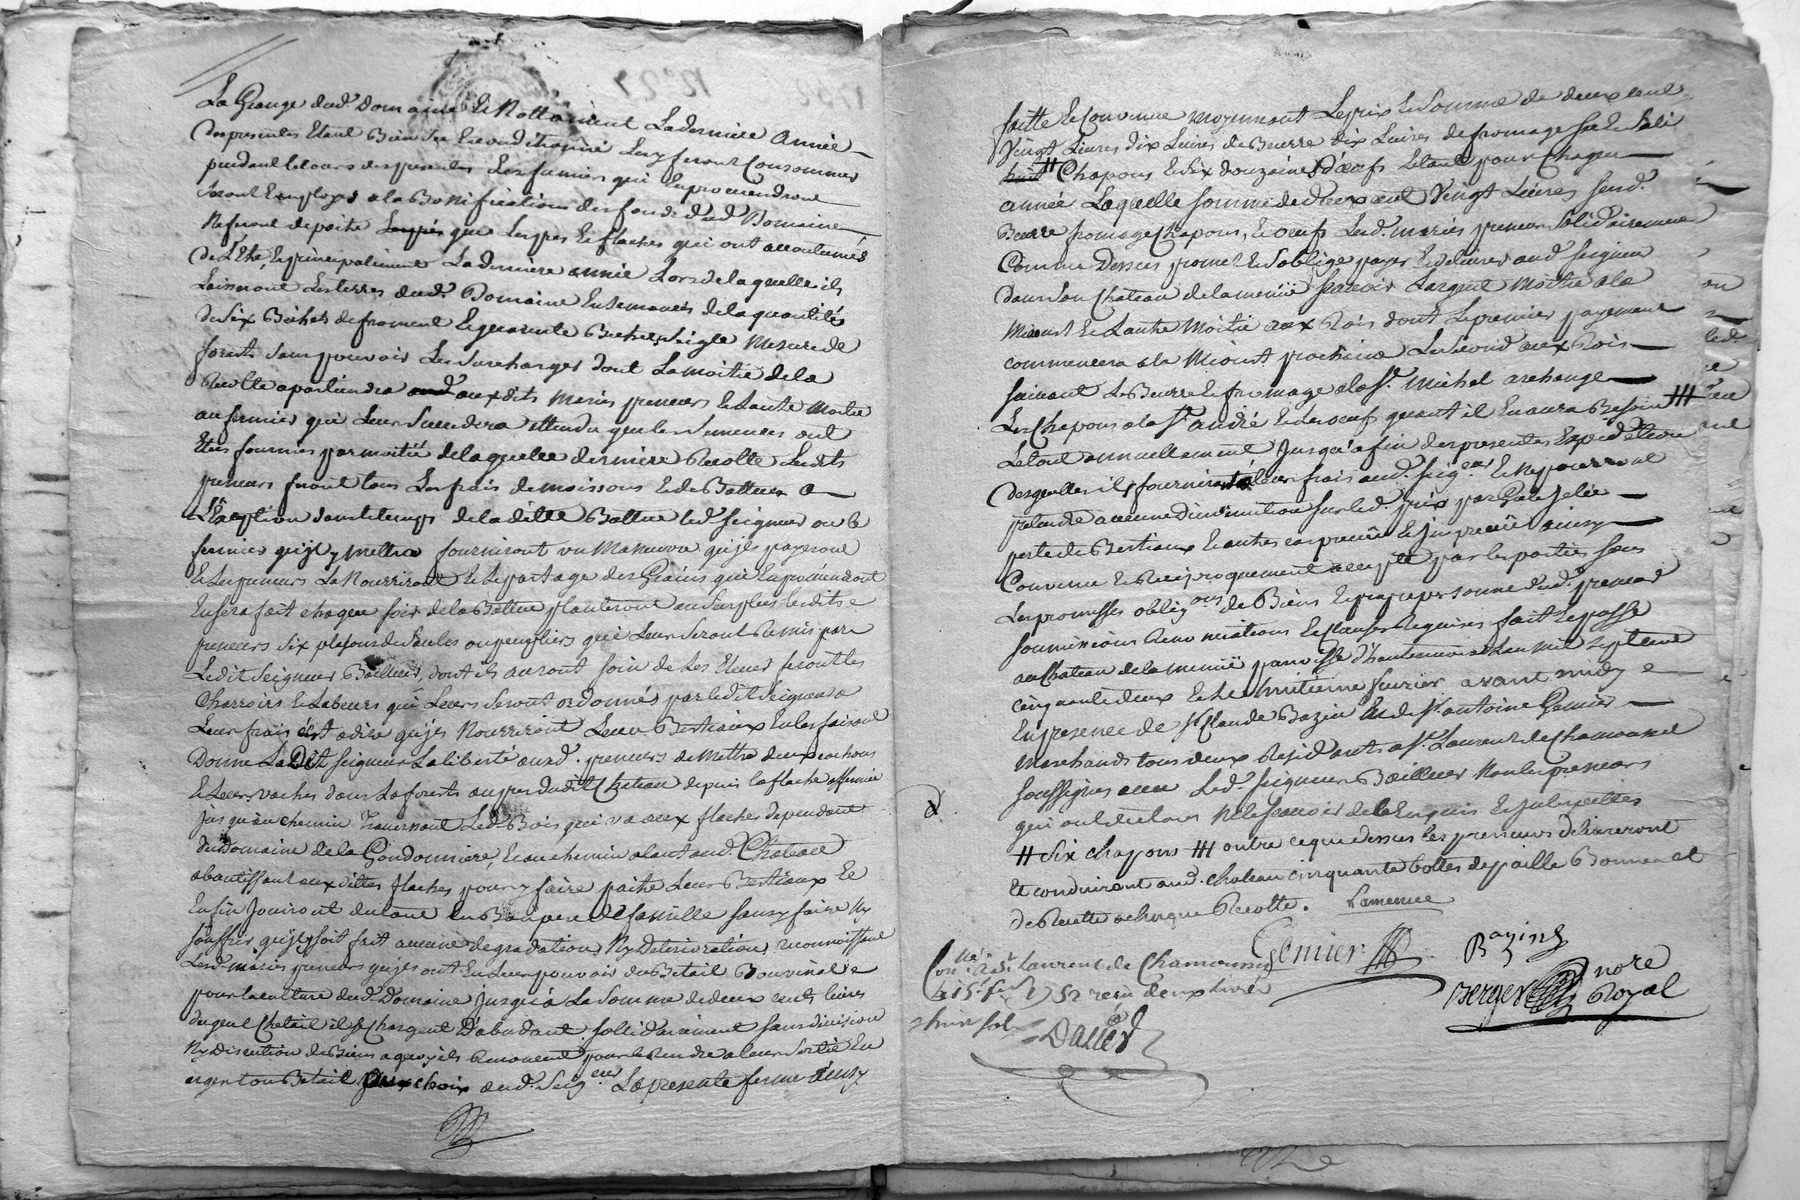 La Grange dud. Domaine Et Nottament La derniere Année
Des presentes Etant Bien
pendant le cours des presentes Les fumiers qui En proviendront
Seront Employés a la Bonification des fonds dud. Domaine
Ne feront de paitte que Les pres Et flaches qui ont accoutumés
De L'Eté, Et principalement La derniere année Lors de laquelle ils
Laisseront Les terres dud. Domaine Ensemencés de la quantité
De Six Bichets de froment Et quarente Bichets Seigle Mesure de
forests Sans pouvoir Les Surcharger dont La moitié de la
Recolte apartiendra auxdits Mariés preneurs Et L'autre Moitie
au fermier qui Leur Succedera attendu que les Semences ont
Etes fournies par moitié de laquelle derniere Recolte Lesdits
preneurs feront tous Les frais de moissons Et de Batture a
L'Exeption dans le temps de la ditte Batture led. Seigneur ou le
fermier qu'il y mettra fourniront un Maneuvre qu'ils payeront
Et Les preneurs Le Nourriront Et Le partage des Grains qui En proviendront
En sera fait chaque fois de la Batture planteront au Surplus lesdits
preneurs Six plansons de Saules ou peupliers qui Leur Seront Remis par
Ledit Seigneur Bailleur, dont ils auront soin de Les Elever feront les
Charrois Et Labeurs qui Leurs Seront ordonnés par ledit Seigneur a
Leur frais c'est a dire qu'ils Nourriront Leurs Bestiaux En les faisant
Donne Ledit Seigneur La liberté aud. preneurs de Mettre deux cochons
Et Leurs vaches dans La forets aupres dudit Chateau depuis la flache
jusqu'au chemin traversant Led. Bois qui va aux flaches dependant
du Domaine de la Goudonniere, Et au chemin alant aud. Chateau
aboutissant aux dittes flaches pour y faire paitre Leurs Bestiaux Et
Enfin Jouiront du tout En Bon pere de famille Sans y faire Ny
souffrir qu'il soit fait aucune degradation Ny Deterioration, reconnoissant
Lesd. mariés preneurs qu'ils ont En Leur pouvoir du Betail Bouvinal
pour la culture dud. Domaine jusqu'à La Somme de deux cents livres
dequel Chetail ils Se Chargent D'abondant sollidairement Sans division
Ny Discution de Biens a quoy ils Renoncent pour le Rendre a leur Sortie En
argent ou Betail aux choix aud. Seig.eur La presente ferme Ainsy
faitte Et Convenue Moyennant Le prix Et Somme de deux cent
Vingt Livres dix Livres de Beurre dix Livres de fromage
Chapons Et Six douzaines d'oeufs Le tout pour Chaque
année Laquelle Somme de deux cent Vingt Livres
Beurre fromage Chapons, Et oeufs Lesd. mariés preneurs Solidairement
Comme Dessus promet Et S'oblige payer Et delivrer aud. Seigneur
dans Son Chateau de la menüe Scavoir L'argent Moitié a la
Miaoust Et L'autre Moitié aux Rois dont Le premier payement
commencera a la Miaoust prochaine Le Second aux Rois
Suivant Le Beurre Et fromage a la St. Michel archange
Les Chapons a la St. andré Et Les oeufs quant il En aura Besoin ///
Le tout annuellement Jusqu'a fin des presentes Expedition
desquelles ils fourniront a leur frais aud. Seig.eur Et Ne pourront
pretendre aucune diminution Sur led. prix par Grele Jelée
perte de Bestiaux Et autres cas preveü Et Inpreveü ainsy
Convenu Et Reciproquement accepté par les parties Sous
Les promesses oblig.ons de Biens Et propre personne dud. preneurs
Soumissions Renonciations Et Clauses Requises fait Et passé
au Chateau de la menüe parroisse d'hauterivoire L'an mil Sept cent
cinquante deux Et le huitieme fevrier avant midy
En presence de Sr. Claude Bazin Et de Sr. antoine Genier
Marchands tous deux Residants a St. Laurent de Chamousset
Soussignes avec Led. Seigneur Bailleur Non les preneurs
qui ont declaré Ne le Scavoir de ce Enquis Et Interpellés
// Six chapons /// outre ce que dessus les preneurs delivreront
Et conduiront aud. chateau cinquante bottes de paille Bonne et
de Recette a chaque Recolte. Lamenue
Genier
Bazin
Berger nore
Royal
Con.lé a St. laurent de Chamousset
le 15e. fev. 1752 reçu deux livres
huit sols
Daviet